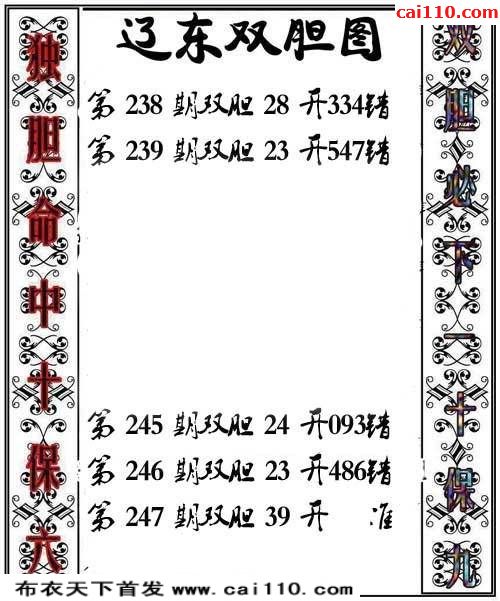 cai110.com
辽东双胆图
第 238 期双胆 28 开334错
第 239 期双胆 23 开547错
第 245 期双胆 24 开093错
第 246 期双胆 23 开486错
第 247 期双胆 39 开 准
独胆命中十保六
双胆必下一十保九
布衣天下首发 www.cai110.com